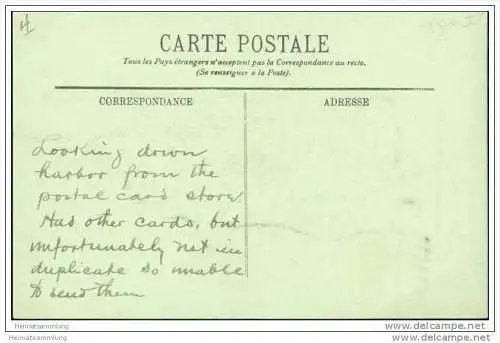 CARTE POSTALE
Tous les Pays étrangers n'acceptent pas la Correspondance au recto.
(Se renseigner à la Poste).
CORRESPONDANCE
ADRESSE
Looking down
harbor from the
postal card store.
Has other cards, but
unfortunately not in
duplicate so unable
to send them
Heimatsammlung
Heimatsammlung